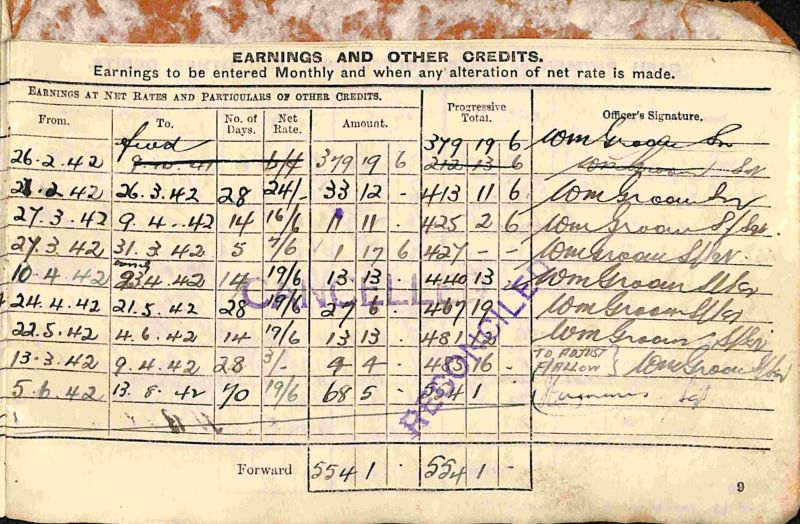 EARNINGS AND OTHER CREDITS.
Earnings to be entered Monthly and when any alteration of net rate is made.
EARNINGS AT NET RATES AND PARTICULARS OF OTHER CREDITS.
From. To. No. of Days. Net Rate. Amount. Progressive Total. Officer's Signature.
Fwd 379 19 6 Wm Groom
26.2.42 379 19 6 212 13 6 Wm Groom
27.2.42 26.3.42 28 24/- 33 12 - 413 11 6 Wm Groom
27.3.42 9.4.42 14 16/6 11 11 - 425 2 6 Wm Groom S/Sgt
27.3.42 31.3.42 5 7/6 1 17 6 427 - - Wm Groom S/Sgt
10.4.42 23.4.42 14 19/6 13 13 - 440 13 - Wm Groom S/Sgt
24.4.42 21.5.42 28 19/6 27 6 - 467 19 Wm Groom S/Sgt
22.5.42 4.6.42 14 19/6 13 13 - 481 12 Wm Groom S/Sgt
13.3.42 9.4.42 28 3/- 4 4 - 485 16 - TO ADJUST F/ALLOW } Wm Groom S/Sgt
5.6.42 13.8.42 70 19/6 68 5 - 554 1 Sgt
CANCELLED
RECONCILED
Forward 554 1 - 554 1 -
9